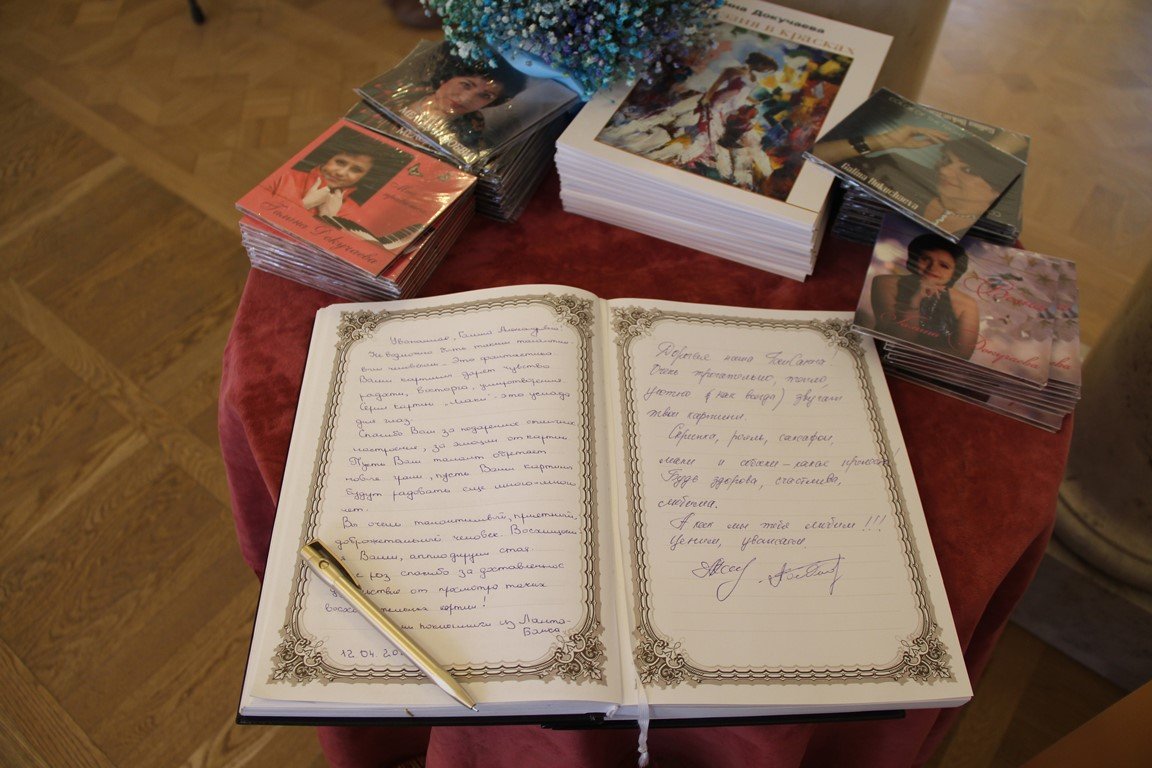 нна Докучаева
в красках
Галина Докучаева
Galina Dokuchaeva
Галина
Докучаева
Уважаемая, Галина Александровна!
Невозможно быть таким талантли-
вым человеком. Это фантастика.
Ваши картины дарят чувство
радости, восторга, умиротворения.
Серия картин „Маки" - это услада
для глаз.
Спасибо Вам за подаренное отличное
настроение, за эмоции от картин.
Пусть Ваш талант обретает
новые грани, пусть Ваши картины
будут радовать еще много-много
лет.
Вы очень талантливый, приятный,
доброжелательный человек. Восхищаюсь
Вами, аплодирую стоя.
раз спасибо за доставленное
от просмотра таких
картин!
из Лайта-
12.04.20
Дорогая наша
Очень трогательно, тепло,
уютно (как всегда) звучали
твои картины.
Скрипка, рояль, саксофон,
маки и собаки – какая прелесть!
Будь здорова, счастлива,
любима.
А как мы тебя любим!!!
Ценим, уважаем.